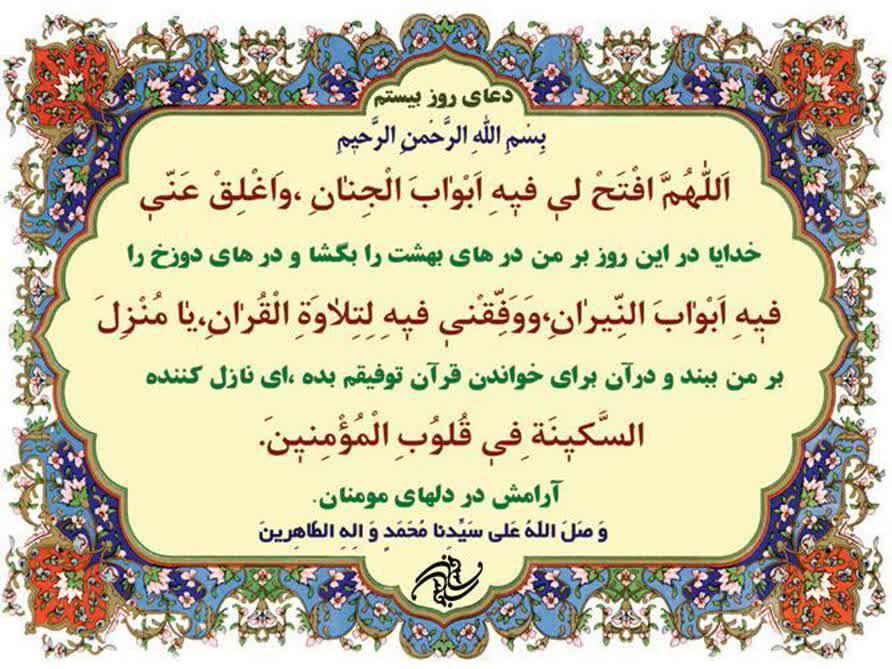 دعای روز بیستم
بِسْمِ اللهِ الرَّحْمنِ الرَّحیمِ
اَللّٰهُمَّ افْتَحْ لي فیٖهِ اَبْوٰابَ الْجِنٰانِ ،وَاَغْلِقْ عَنّي
خدایا در این روز بر من در های بهشت را بگشا و در های دوزخ را
فیٖهِ اَبْوٰابَ النّیرٰانِ،وَوَفِّقْني فیٖهِ لِتِلاٰوَةِ الْقُرٰانِ،یٰا مُنْزِلَ
بر من ببند و درآن برای خواندن قرآن توفیقم بده ،ای نازل کننده
السَّکیٖنَةِ فِي قُلُوُبِ الْمُؤْمِنیٖنَ.
آرامش در دلهای مومنان.
وَ صَلَ اللهُ عَلی سَیِّدِنا مُحَمَدٍ وَ الِهِ الطاهِرینَ